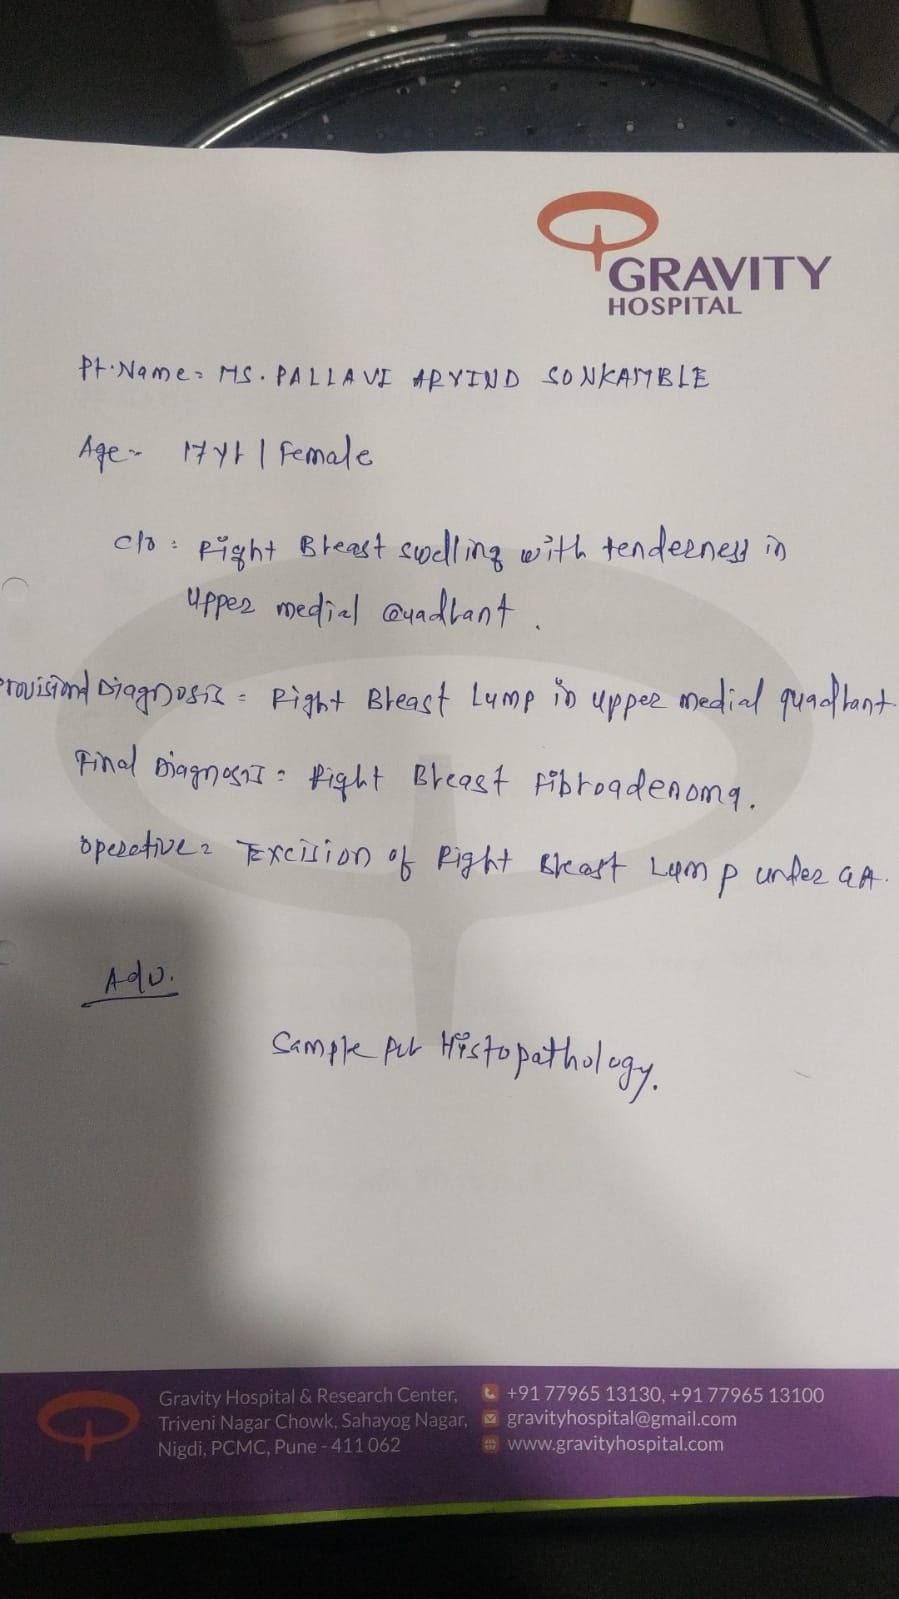 GRAVITY
HOSPITAL
Pt. Name = MS. PALLAVI ARVIND SONKAMBLE
Age - 17 yr / Female
c/o : Right Breast swelling with tenderness in
upper medial Quadrant.
Provisional Diagnosis = Right Breast Lump in upper medial quadrant
Final Diagnosis : Right Breast Fibroadenoma.
Operative = Excision of Right Breast Lump under GA.
Adv.
Sample for Histopathology.
Gravity Hospital & Research Center,
Triveni Nagar Chowk, Sahayog Nagar,
Nigdi, PCMC, Pune - 411 062
+91 77965 13130, +91 77965 13100
gravityhospital@gmail.com
www.gravityhospital.com